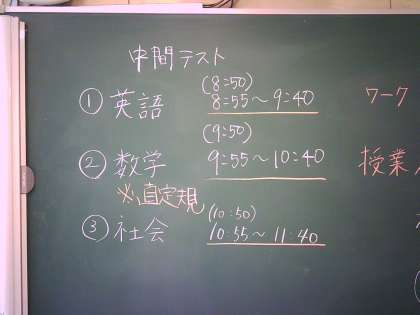 中間テスト
(8:50)
① 英語 8:55～9:40 ワーク
(9:50)
② 数学 9:55～10:40 授業
※直定規
(10:50)
③ 社会 10:55～11:40